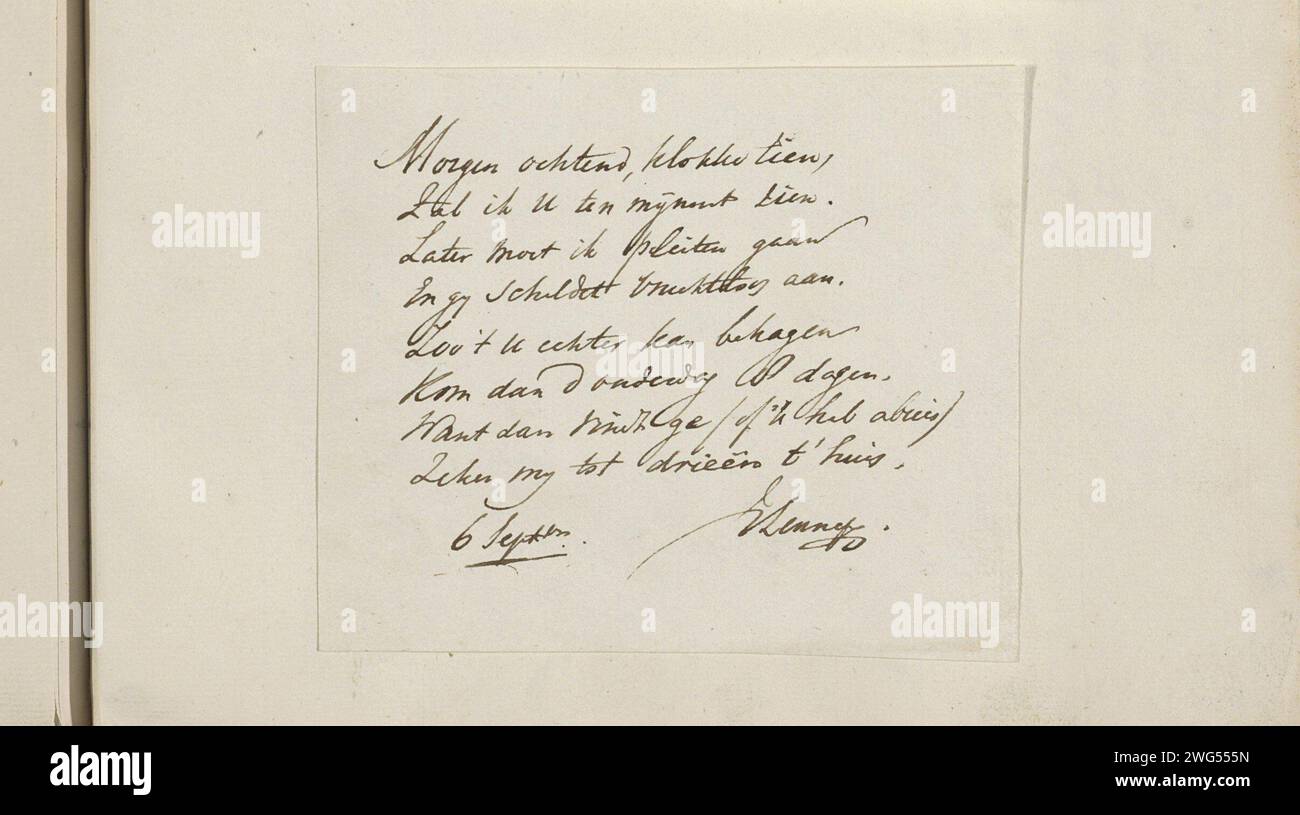 Morgen ochtend, klokke tien,
Zal ik u ten mynent zien.
Later moet ik pleiten gaan
En gy scheldet vruchtloos aan.
Zoo 't u echter kan behagen
Kom dan donderdag 8 dagen.
Want dan vindt ge (of 'k heb abuis)
Zeker my tot drieën t' huis.
6 Septbr.
Lennep.
alamy
Image ID: 2WG555N
www.alamy.com